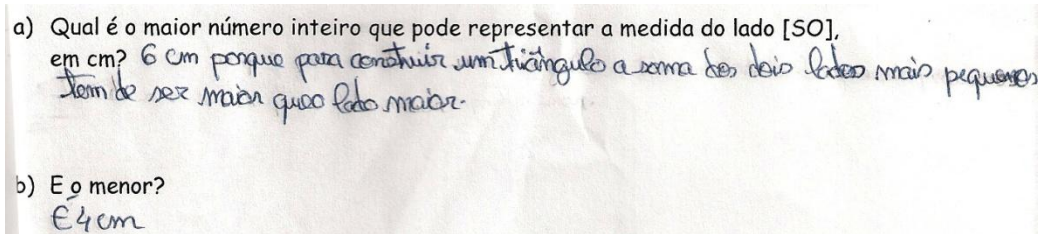 a) Qual é o maior número inteiro que pode representar a medida do lado [SO],
em cm? 6 cm porque para construir um triângulo a soma dos dois lados mais pequenos
tem de ser maior que o lado maior.
b) E o menor?
É 4 cm